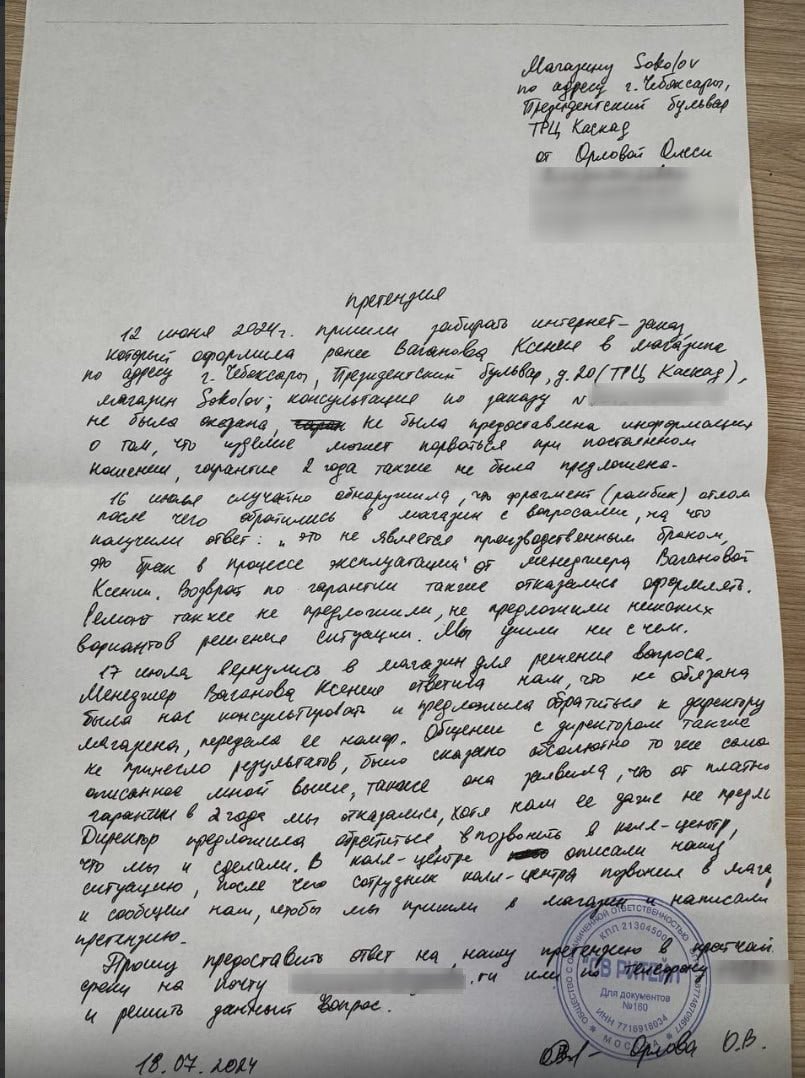 Магазину Sokolov
по адресу г. Чебоксары,
Президентский бульвар
ТРЦ Каскад
от Орловой Олеси
претензия
12 июня 2024г. пришли забирать интернет-заказ,
который оформила ранее Ваганова Ксения в магазине
по адресу г. Чебоксары, Президентский бульвар, д.20 (ТРЦ Каскад),
магазин Sokolov; консультация по заказу N
не была оказана, не была предоставлена информация
о том, что изделие может порваться при постоянном
ношении, гарантия 2 года также не была предложена.
16 июля случайно обнаружила, что фрагмент (ромбик) отлом
после чего обратились в магазин с вопросами, на что
получили ответ: „это не является производственным браком,
это брак в процессе эксплуатации" от менеджера Вагановой
Ксении. Возврат по гарантии также отказались оформлять.
Ремонт также не предложили, не предложили никаких
вариантов решения ситуации. Мы ушли ни с чем.
17 июля вернулись в магазин для решения вопроса.
Менеджер Ваганова Ксения ответила нам, что не обязана
была нас консультировать и предложила обратиться к директору
магазина, передала ее номер. Общение с директором также
не принесло результатов, было сказано абсолютно то же само
описанное мной выше, также она заявила, что от платно
гарантии в 2 года мы отказались, хотя нам ее даже не предл
Директор предложила обратиться, позвонить в колл-центр,
что мы и сделали. В колл-центре описали нашу
ситуацию, после чего сотрудник колл-центра позвонил в мага
и сообщил нам, чтобы мы пришли в магазин и написали
претензию.
Прошу предоставить ответ на нашу претензию в кратчай
сроки на почту .ru или по телефону
и решить данный вопрос.
18.07.2024
Орлова О.В.
ОБЩЕСТВО С ОГРАНИЧЕННОЙ ОТВЕТСТВЕННОСТЬЮ
КПП 213045001
РИТЕЙЛ"
Для документов
№160
ИНН 7716916034
МОСКВА